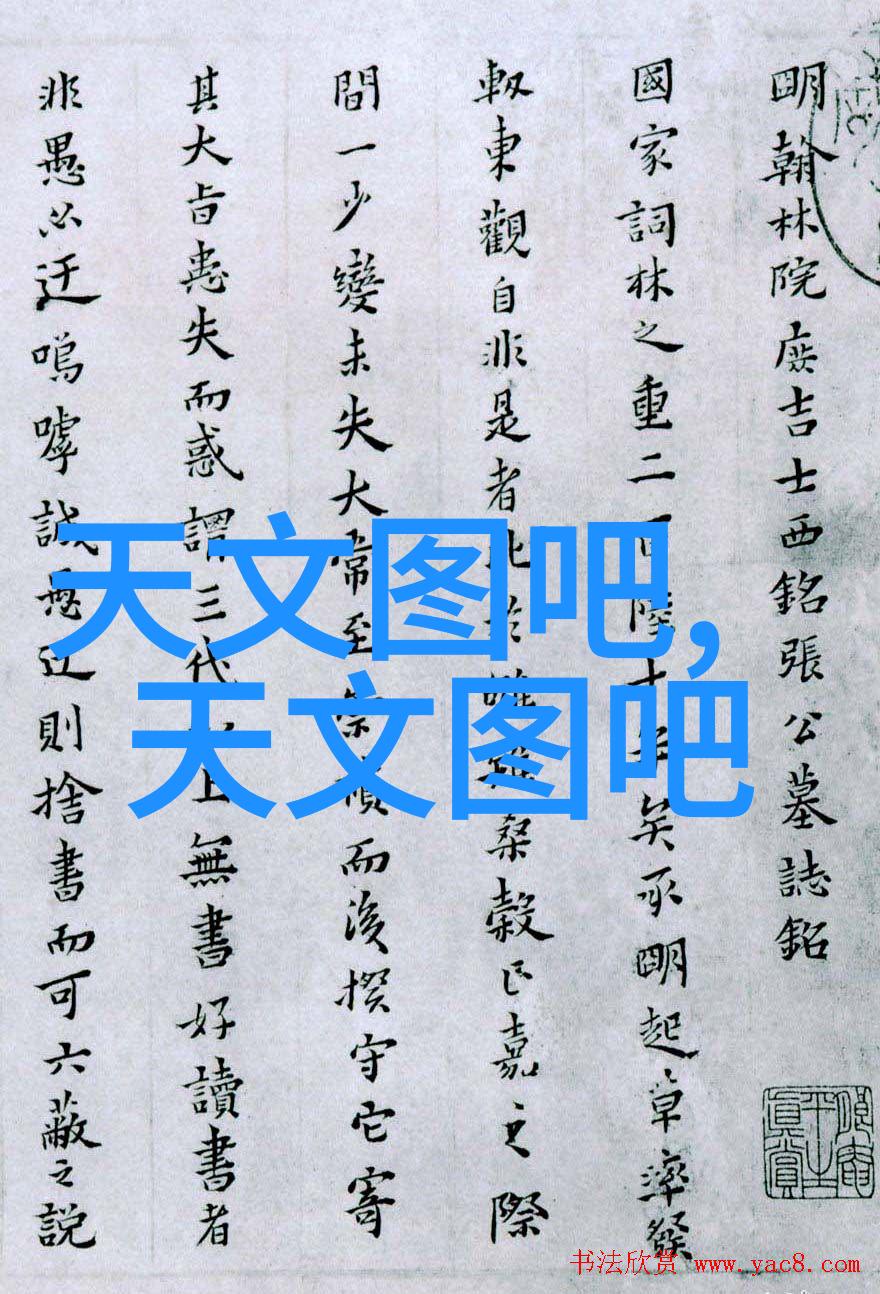 明翰林院庶吉士西銘張公墓誌銘
國家詞林之重二百陸十年矣承明起草率發
軔東觀自非是者比於雊雉桑穀正嘉之際
間一少變未失大常至崇禎而後揆守它寄
其大旨患失而惑謂三代以上無書好讀書者
非愚必迂嗚嘑誠愚迂則捨書而可六蔽之說
天文图吧,
天文图吧
书法欣赏 www.yac8.com